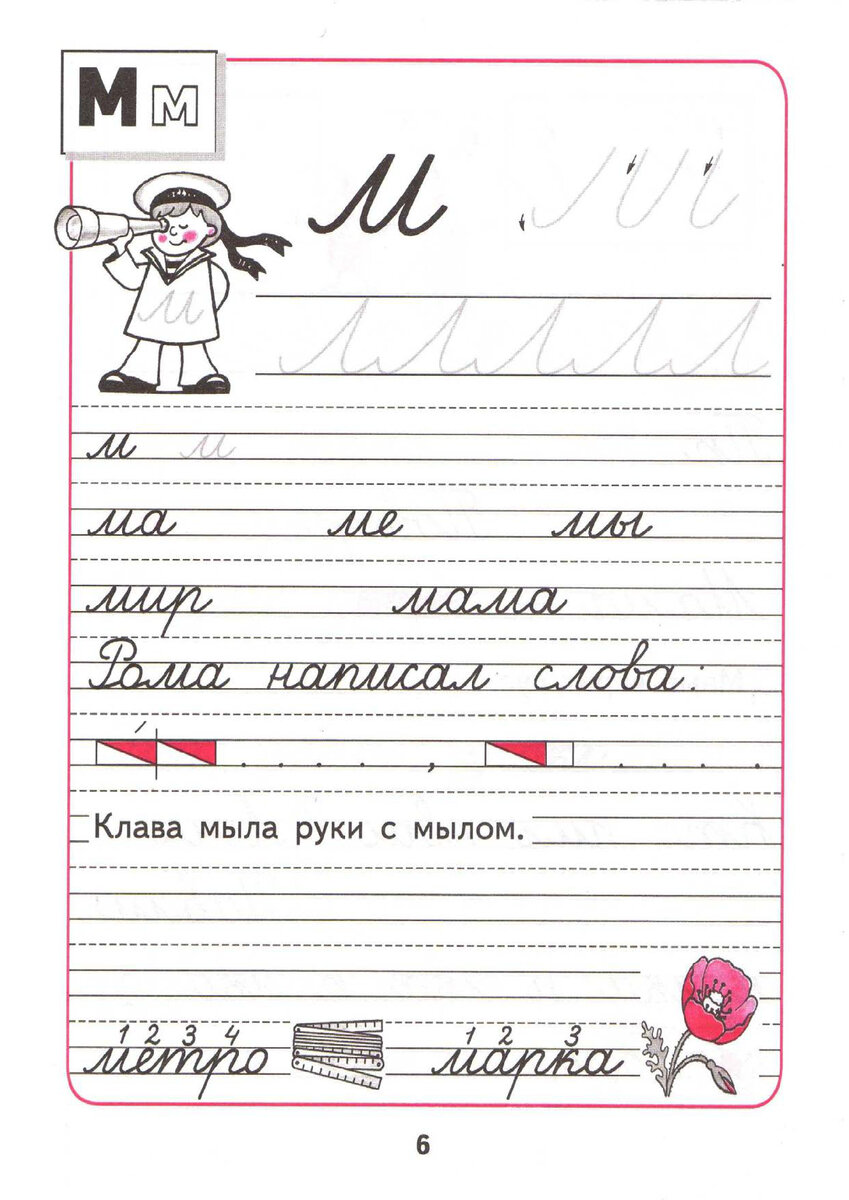 М м
м
м
м м
ма ме мы
мир мама
Рома написал слова:
. . . . . , . . . .
Клава мыла руки с мылом.
1 2 3 4 1 2 3
метро марка
6